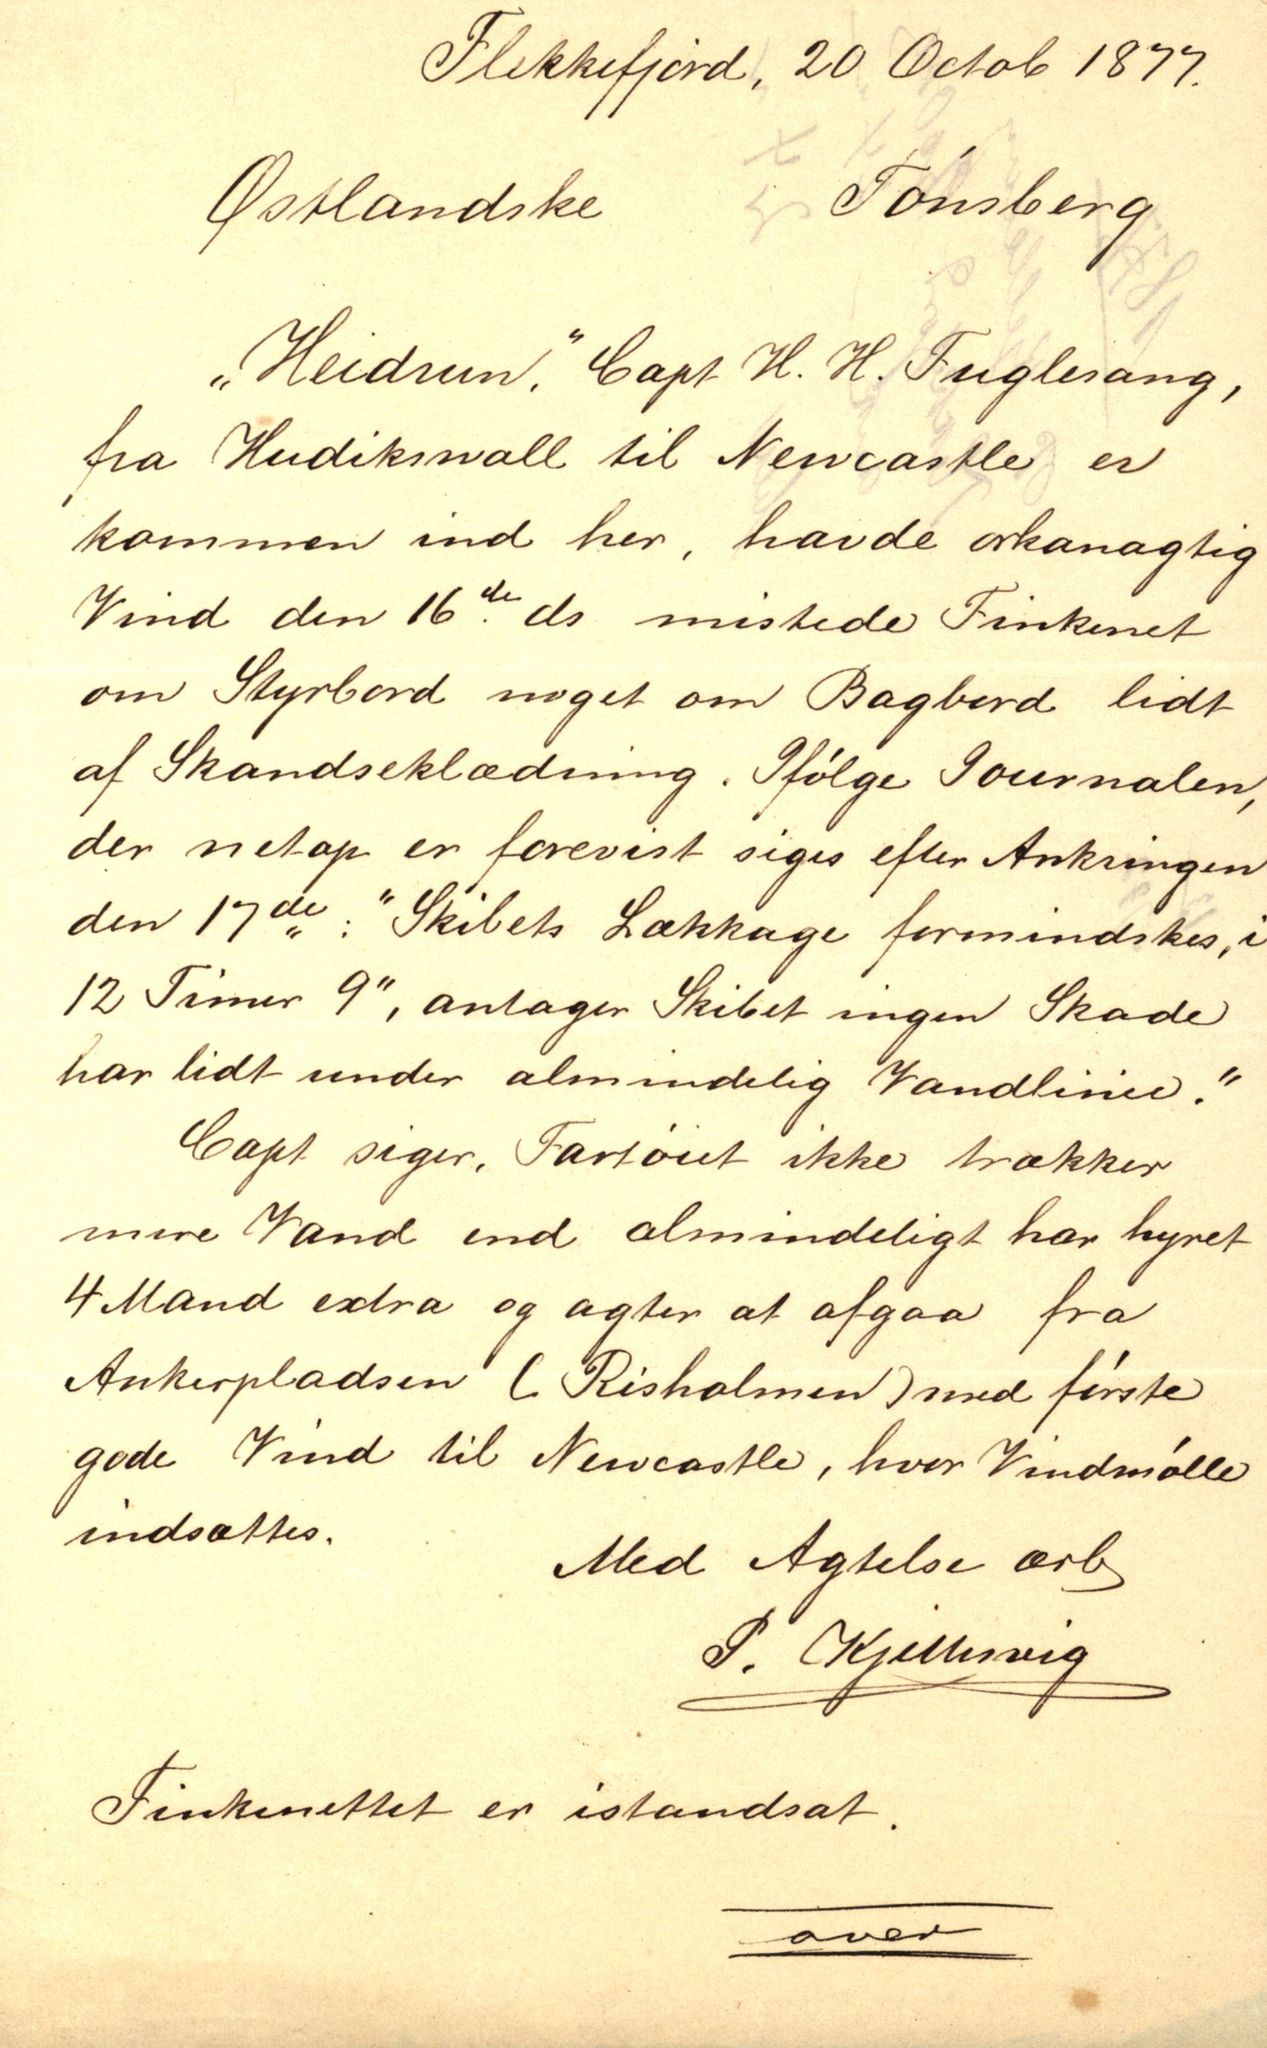 Flekkefjord, 20 Octob 1877.
Østlandske Tónsberg
„Heidrun.” Capt H. H. Fuglesang,
fra Hudikswall til Newcastle er
kommen ind her, havde orkanagtig
Vind den 16de. ds mistede Finkenet
om Styrbord noget om Bagbord lidt
af Skandseklædning. Ifólge Journalen,
der netop er forevist siges efter Ankringen
den 17de: "Skibets Lækkage formindskes, i
12 Timer 9", antager Skibet ingen Skade
har lidt under almindelig Vandlinie."
Capt siger, Fartóiet ikke trækker
mere Vand end almindeligt har hyret
4 Mand extra og agter at afgaa fra
Ankerpladsen (Risholmen) med fórste
gode Vind til Newcastle, hvor Vindmólle
indsættes.
Med Agtelse ærb
P. Kjellesvig
Finkenettet er istandsat.
over